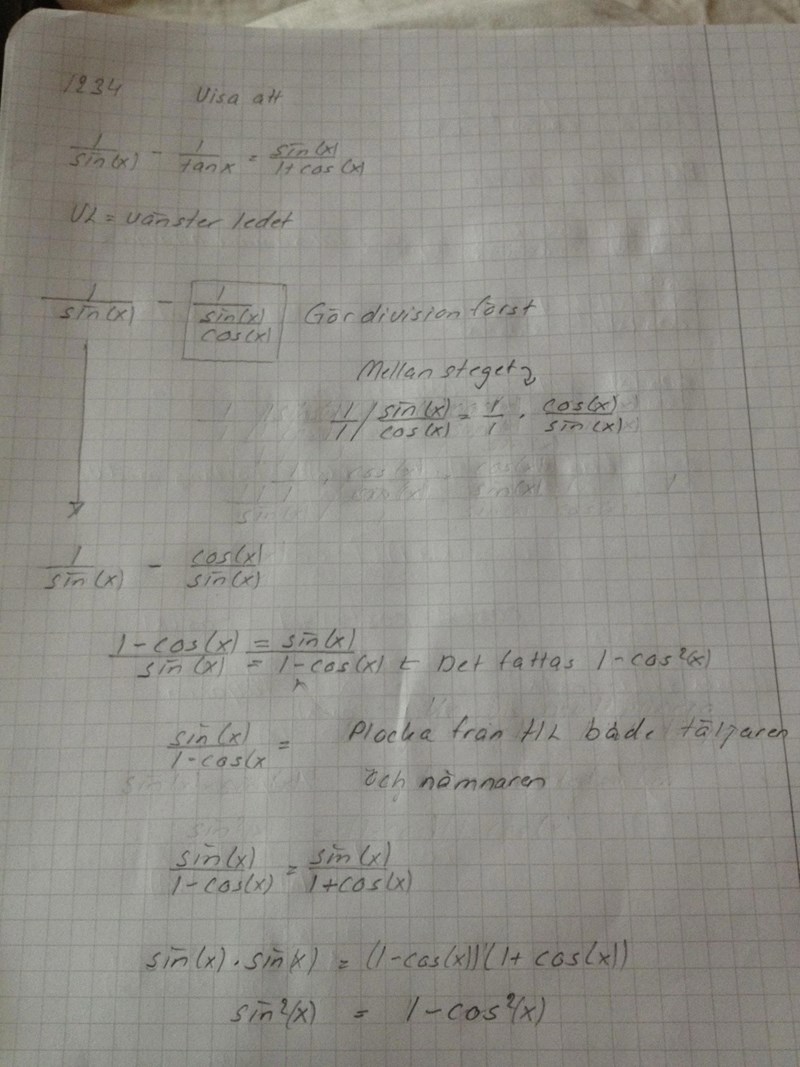 1234 Visa att
1/sin(x) - 1/tanx = sin(x)/1+cos(x)
VL = vänster ledet
1/sin(x) - 1/sin(x)/cos(x) Gör division först
Mellan steget
1/1 / sin(x)/cos(x) = 1/1 · cos(x)/sin(x)
1/sin(x) - cos(x)/sin(x)
1-cos(x)/sin(x) = sin(x)/1-cos(x) ← Det fattas 1-cos²(x)
sin(x)/1-cos(x = Plocka från HL både täljaren
och nämnaren
sin(x)/1-cos(x) = sin(x)/1+cos(x)
sin(x) · sin(x) = (1-cos(x))(1+cos(x))
sin²(x) = 1-cos²(x)